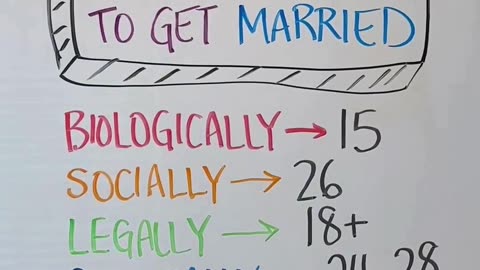 TO GET MARRIED
BIOLOGICALLY → 15
SOCIALLY → 26
LEGALLY → 18+
24-28